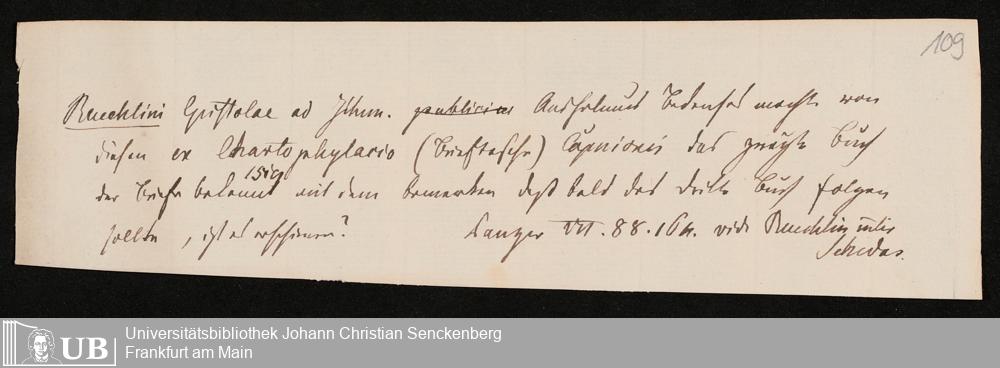 109
Reuchlini Epistolae ad Jthum. publicirt Anshelmus Badensis machte von
diesen ex Chartophylacio (Brieftasche) Capnionis das zweyte Buch
der Briefe bekannt 1519 mit dem Bemerken daß bald das dritte Buch folgen
sollte, ist es erschienen? Panzer VII. 88. 164. vide Reuchlin inter
Schedas.
UB
Universitätsbibliothek Johann Christian Senckenberg
Frankfurt am Main